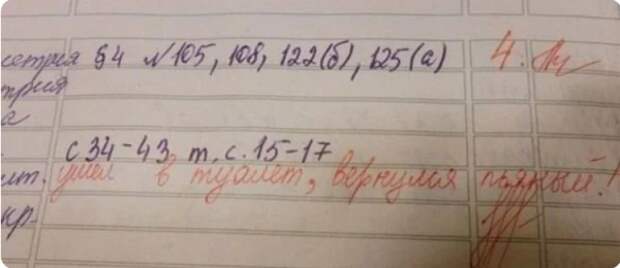 метрия §4 №105, 108, 122(б), 125(а) 4.
трия
а
с 34-43 т. с. 15-17
ушёл в туалет, вернулся пьяный!